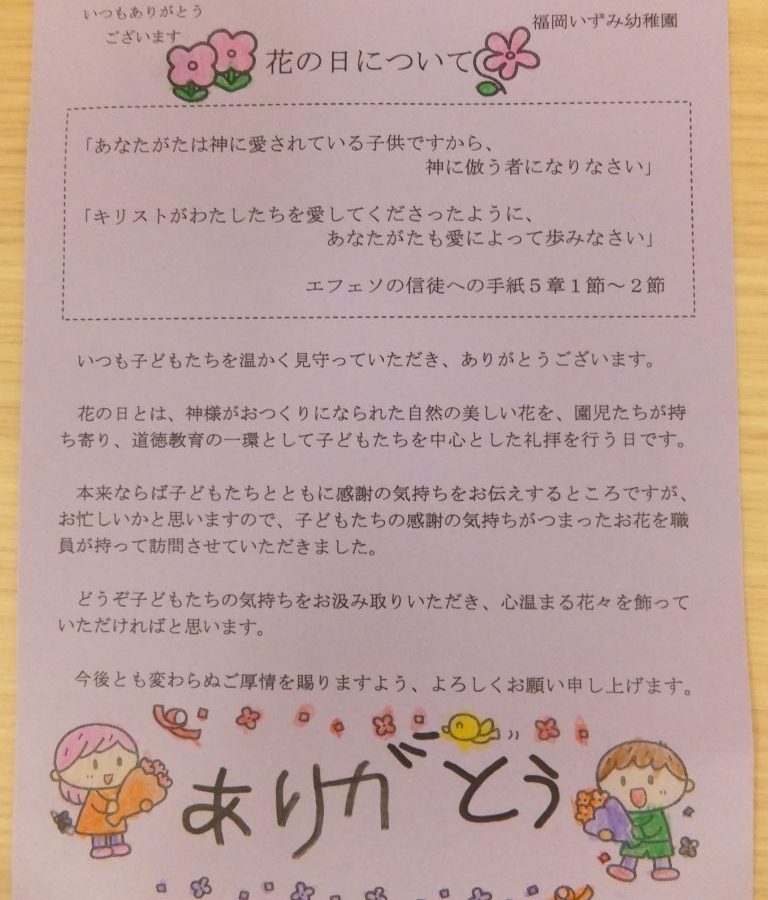 いつもありがとう
ございます
福岡いずみ幼稚園
花の日について
「あなたがたは神に愛されている子供ですから、
神に倣う者になりなさい」
「キリストがわたしたちを愛してくださったように、
あなたがたも愛によって歩みなさい」
エフェソの信徒への手紙５章１節～２節
いつも子どもたちを温かく見守っていただき、ありがとうございます。
花の日とは、神様がおつくりになられた自然の美しい花を、園児たちが持
ち寄り、道徳教育の一環として子どもたちを中心とした礼拝を行う日です。
本来ならば子どもたちとともに感謝の気持ちをお伝えするところですが、
お忙しいかと思いますので、子どもたちの感謝の気持ちがつまったお花を職
員が持って訪問させていただきました。
どうぞ子どもたちの気持ちをお汲み取りいただき、心温まる花々を飾って
いただければと思います。
今後とも変わらぬご厚情を賜りますよう、よろしくお願い申し上げます。
ありがとう